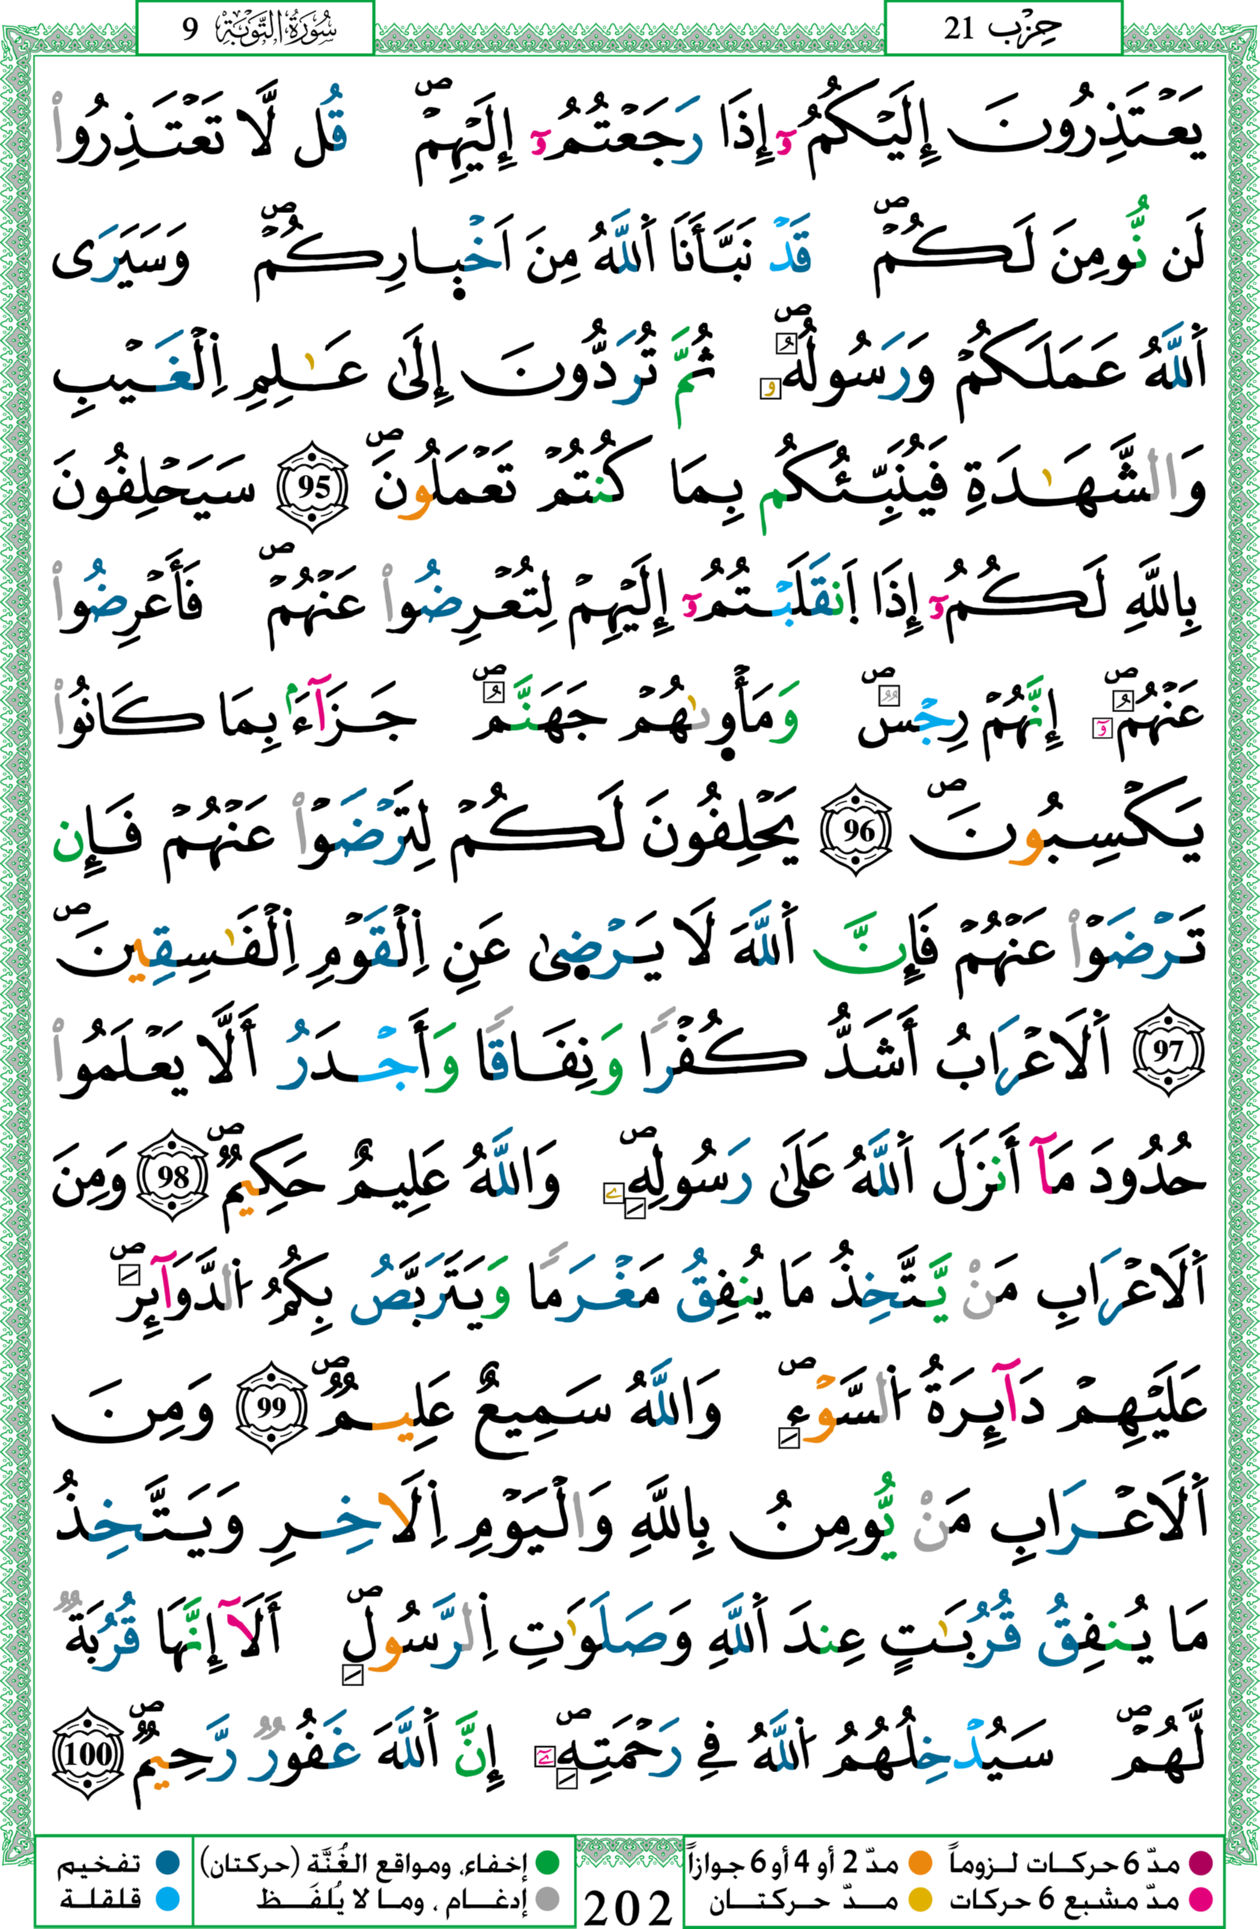 حِزْب 21
سُورَةُ التَّوْبَة 9
يَعْتَذِرُونَ إِلَيْكُمُۥٓ إِذَا رَجَعْتُمُۥٓ إِلَيْهِمْۖ قُل لَّا تَعْتَذِرُواْ
لَن نُّومِنَ لَكُمْۖ قَدْ نَبَّأَنَا اَ۬للَّهُ مِنَ اَخْب۪ارِكُمْۖ وَسَيَرَى
اَ۬للَّهُ عَمَلَكُمْ وَرَسُولُهُۥۖ ثُمَّ تُرَدُّونَ إِلَىٰ عَٰلِمِ اِ۬لْغَيْبِ
وَالشَّهَٰدَةِ فَيُنَبِّئُكُم بِمَا كُنتُمْ تَعْمَلُونَۖ 95 سَيَحْلِفُونَ
بِاللَّهِ لَكُمُۥٓ إِذَا اَ۪نقَلَبْتُمُۥٓ إِلَيْهِمْ لِتُعْرِضُواْ عَنْهُمْۖ فَأَعْرِضُواْ
عَنْهُمُۥٓۖ إِنَّهُمْ رِجْسٌۖ وَمَأْو۪ىٰهُمْ جَهَنَّمُۖ جَزَآءَۢ بِمَا كَانُواْ
يَكْسِبُونَۖ 96 يَحْلِفُونَ لَكُمْ لِتَرْضَوْاْ عَنْهُمْ فَإِن
تَرْضَوْاْ عَنْهُمْ فَإِنَّ اَ۬للَّهَ لَا يَرْض۪ىٰ عَنِ اِ۬لْقَوْمِ اِ۬لْفَٰسِقِينَۖ
97 اَ۬لَاعْرَابُ أَشَدُّ كُفْرًا وَنِفَاقًا وَأَجْدَرُ أَلَّا يَعْلَمُواْ
حُدُودَ مَآ أَنزَلَ اَ۬للَّهُ عَلَىٰ رَسُولِهِۦۖ وَاللَّهُ عَلِيمٌ حَكِيمٌۖ 98 وَمِنَ
اَ۬لَاعْرَابِ مَنْ يَّتَّخِذُ مَا يُنفِقُ مَغْرَمًا وَيَتَرَبَّصُ بِكُمُ اُ۬لدَّوَآئِرَۖ
عَلَيْهِمْ دَآئِرَةُ اُ۬لسَّوْءِۖ وَاللَّهُ سَمِيعٌ عَلِيمٌۖ 99 وَمِنَ
اَ۬لَاعْرَابِ مَنْ يُّومِنُ بِاللَّهِ وَالْيَوْمِ اِ۬لَاخِرِ وَيَتَّخِذُ
مَا يُنفِقُ قُرُبَٰتٍ عِندَ اَ۬للَّهِ وَصَلَوَٰتِ اِ۬لرَّسُولِۖ أَلَآ إِنَّهَا قُرْبَةٌ
لَّهُمْۖ سَيُدْخِلُهُمُ اُ۬للَّهُ فِے رَحْمَتِهِۦٓۖ إِنَّ اَ۬للَّهَ غَفُورٌ رَّحِيمٌۖ 100
مدّ 6 حركات لـزوماً مدّ 2 أو 4 أو 6 جوازاً
مدّ مشبع 6 حركات مـدّ حركتـان
202
إخفاء، ومواقع الغُنَّة (حركتان) تفخيم
إدغـام ، ومـا لا يُلفَـظ قلقلة